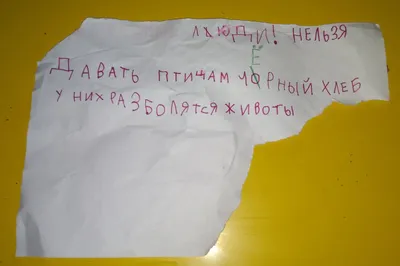 ЛЮДИ! НЕЛЬЗЯ
ДАВАТЬ ПТИЧАМ ЧЁРНЫЙ ХЛЕБ
У НИХ РАЗБОЛЯТСЯ ЖИВОТЫ